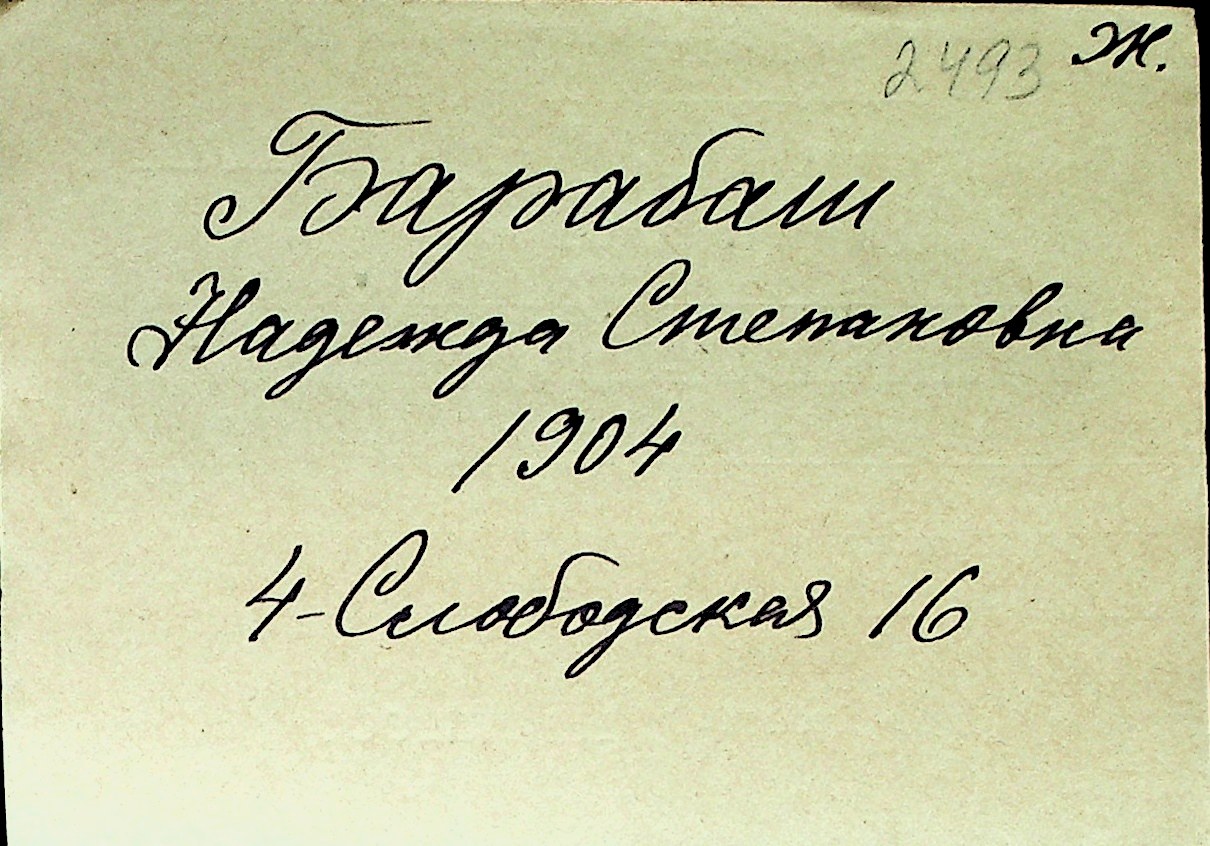 2493 Ж.
Барабаш
Надежда Степановна
1904
4-Слободская 16